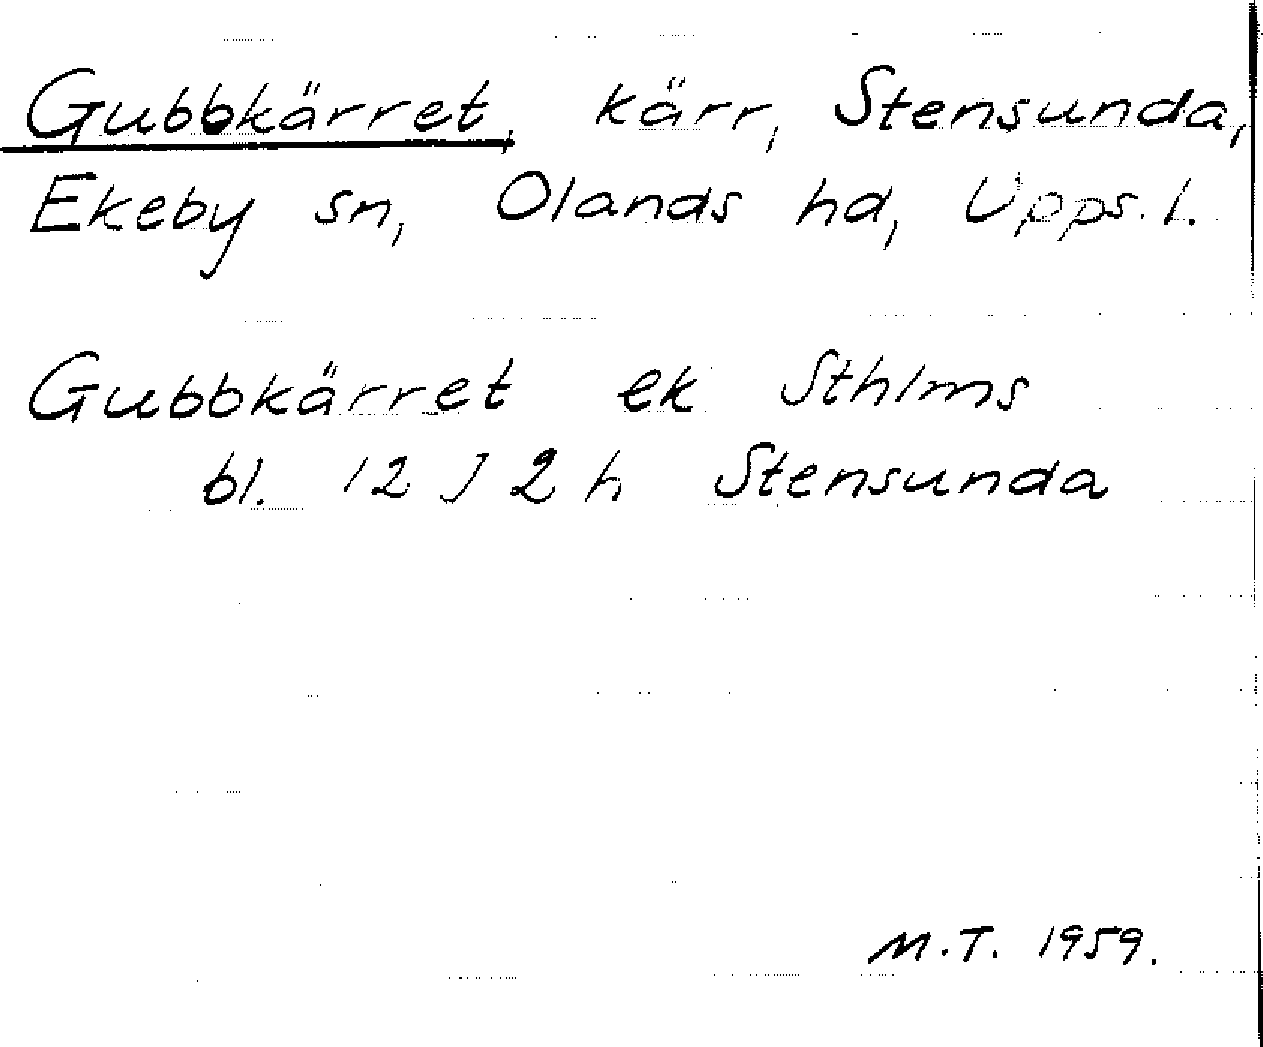 Gubbkärret, kärr, Stensunda,
Ekeby sn, Olands hd, Upps. l.
Gubbkärret ek Sthlms
bl. 12 J 2 h Stensunda
M.T. 1959.